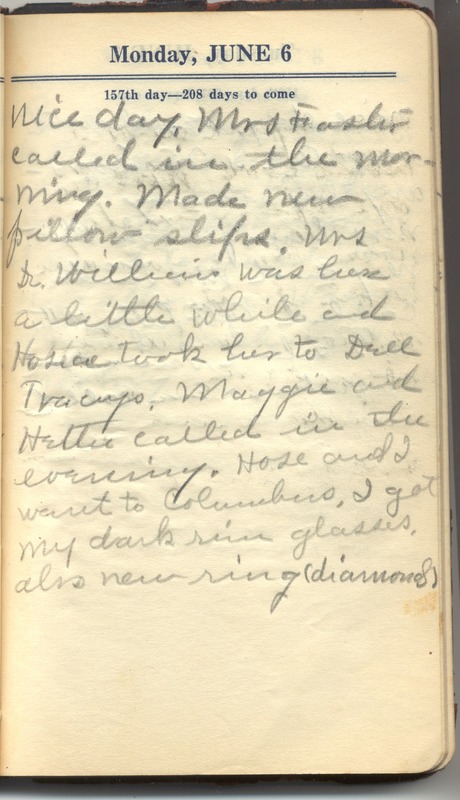 Monday, JUNE 6
157th day—208 days to come
Nice day. Mrs
called in the mor-
ning. Made new
pillow slips. Mrs
Dr. Williams was here
a little while and
Hosie took her to Dell
Tracys. Maggie and
Hettie called in the
evening. Hose and I
went to Columbus, I got
my dark rim glasses.
also new ring (diamond)